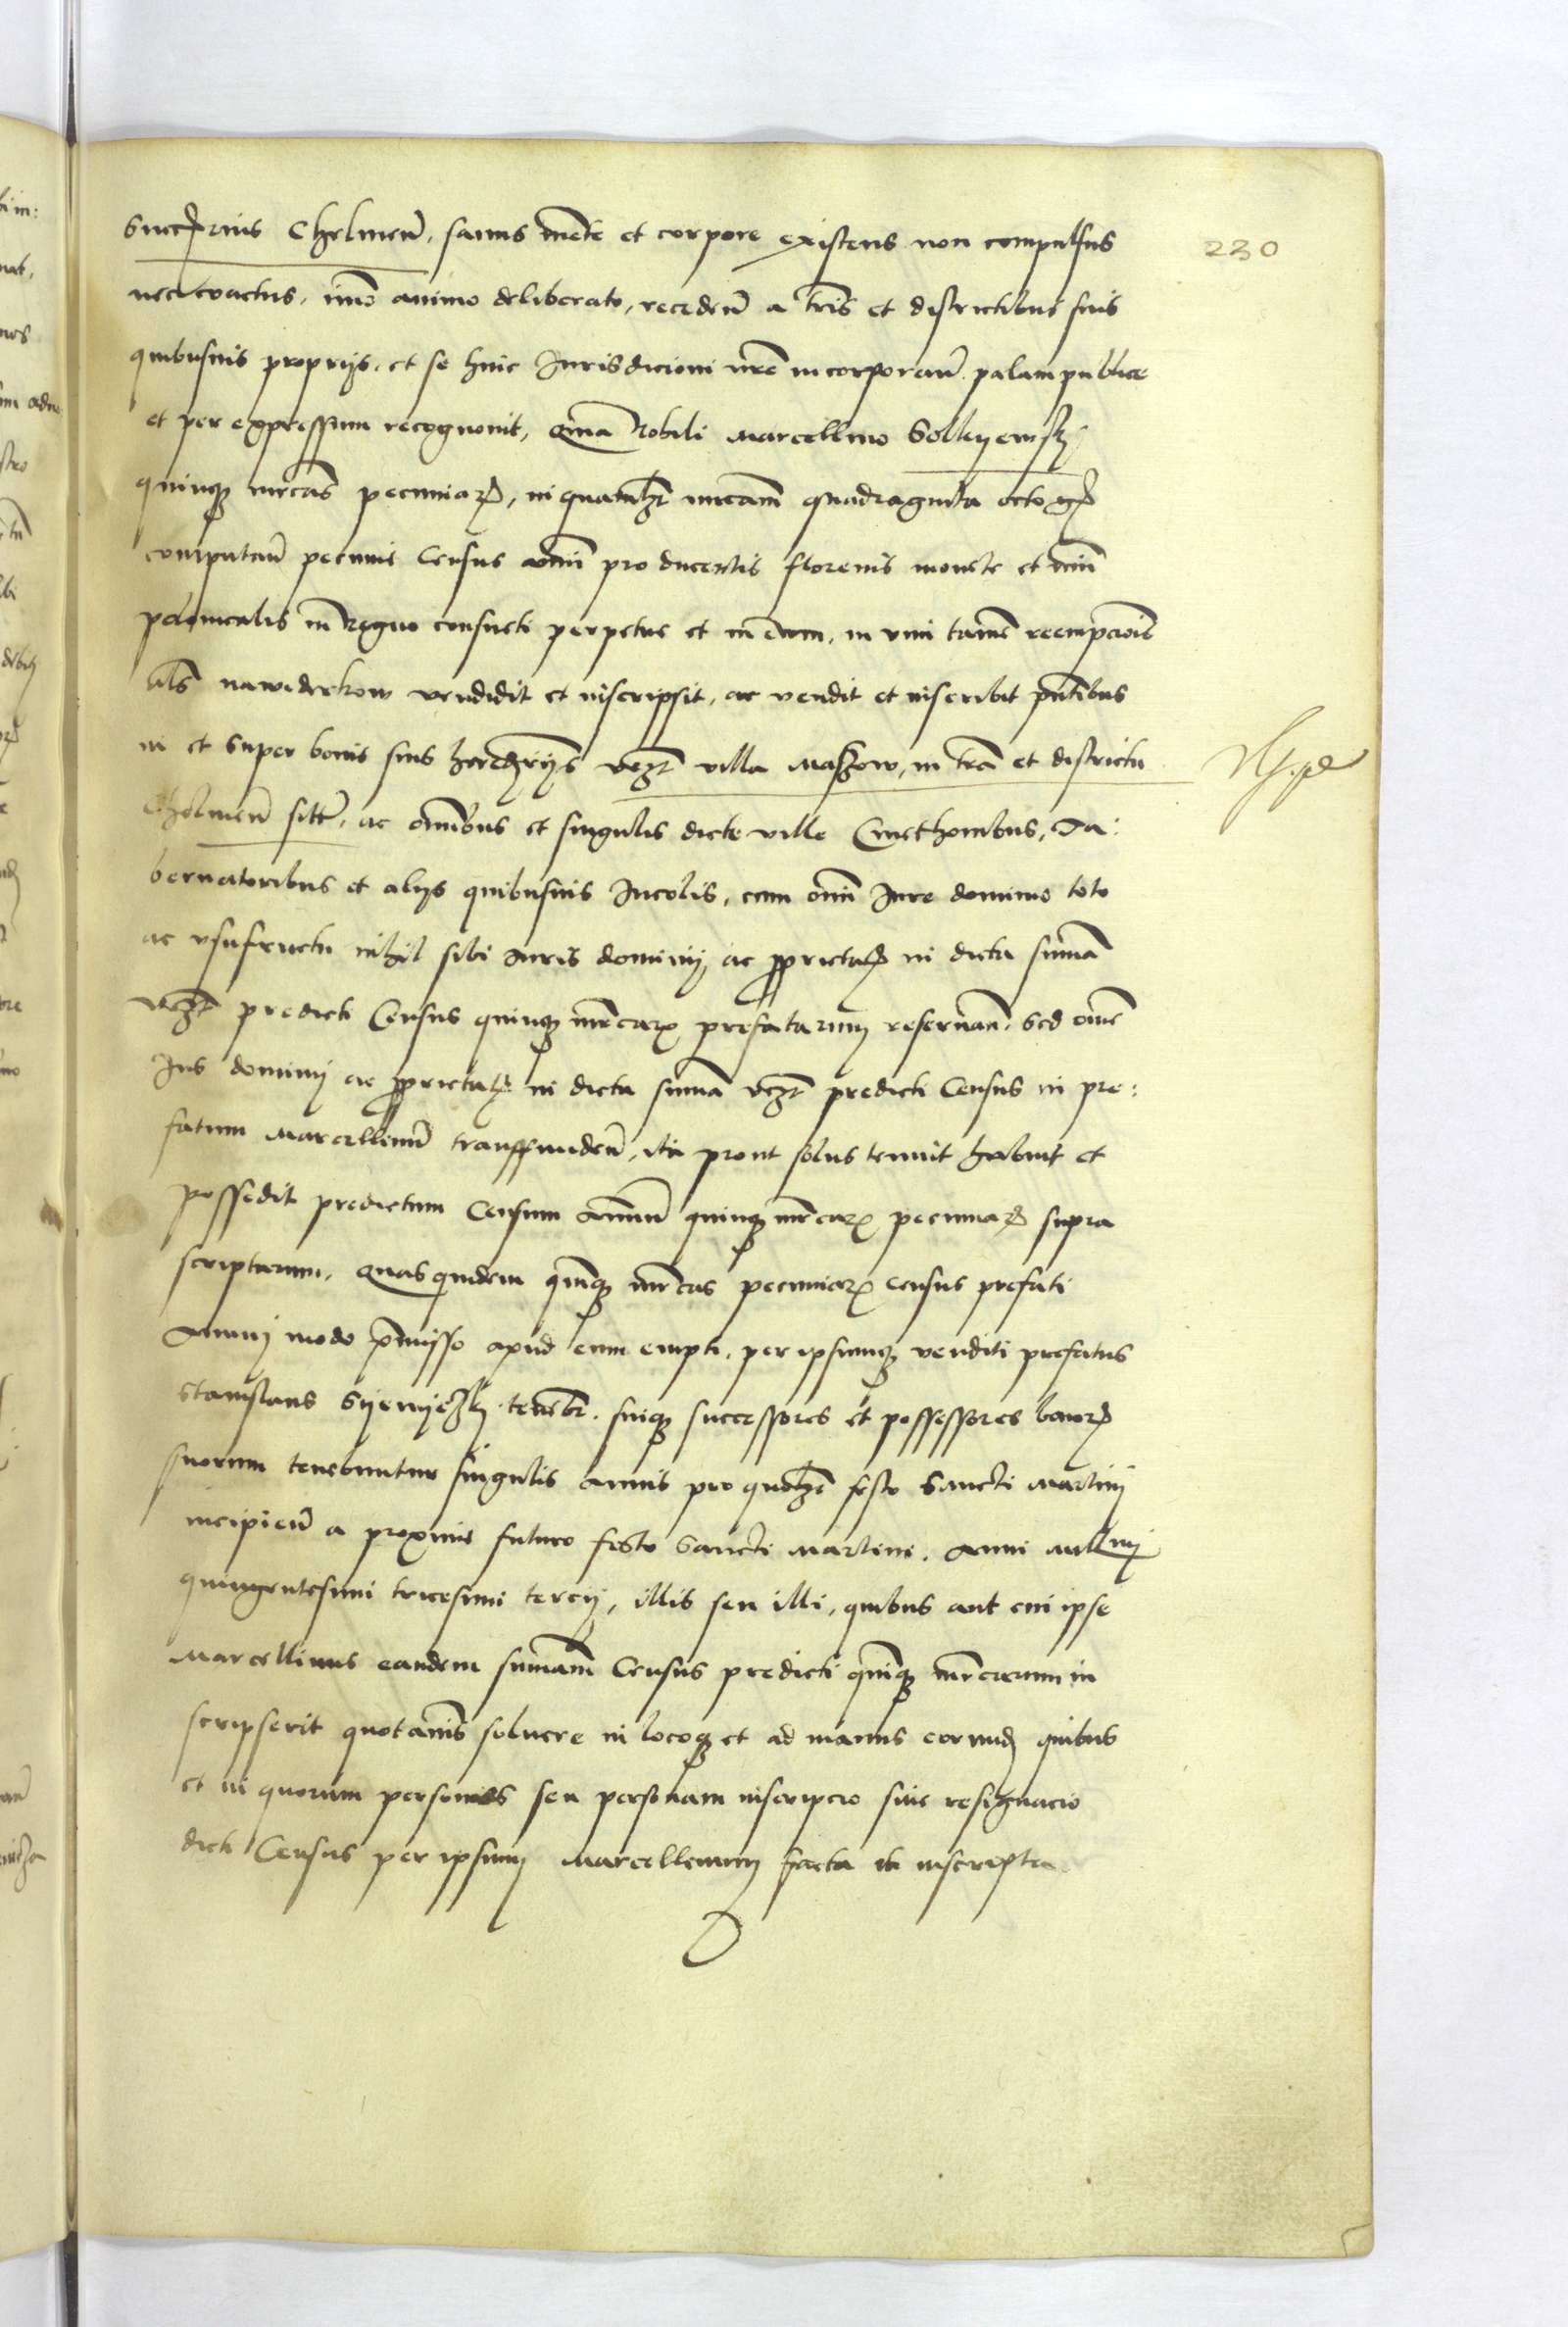 230
Succamerarius Chelmen̄, sanus mēte et corpore existens non compulsus
nec coactus, imo animo deliberato, recedeñ a tr̄is et districtibus suis
quibusuis proprijs, et se huic Iurisdicioni nr̄e incorporañ palam publice
et per expressum recognouit, Quia Nobili Marcellino
quinqʒ mrcas pecuniarꝝ, in quamlʒt mrcam quadraginta octo gr̄
computañ pecunie Census ānui pro ducentis florenis monete et nūi
polonicalis in Regno consueti perpetue et in ewm, in vim tamē reempcōis
al̄s naviderkow vendidit et inscripsit, ac vendit et inscribit pñtibus
in et super bonis suis hereditarijs vcʒt villa Maszow, in tr̄a et districtu
Chelmeñ sitt, ac omībus et singulis dicte ville Cmethonibus, Ta:
bernatoribus et alijs quibusuis Incolis, cum omī Iure dominio toto
ac vsufructu nihil sibi Iuris dominij ac ꝓprietatꝭ in dicta summa
vcʒt predicti Census quinqʒ mrcarꝝ prefatarum reseruañ, sed omē
Ius dominij ac ꝓprietatꝭ in dicta summa vcʒt predicti Census in pre:
fatum Marcellinū transfundeñ, ita prout solus tenuit habuit et
possedit predictum Censum Annuū quinqʒ mrcarꝝ pecuniarꝝ supra
scriptarum, Quasquidem quinqʒ mrcas pecuniarꝝ census prefati
Annuj modo p̄misso apud eum empti, per ipsumqʒ venditi prefatus
Stanislaus tenebr̄ suiqʒ successores et possessores bonorꝝ
suorum tenebuntur singulis Annis pro quolʒt festo Sancti Martini
incipieñ a proxime futuro festo Sancti Martini, Anni Millmi
quingentesimi tricesimi tercij, illis seu illi, quibus aut cui ipse
Marcellinus eandem summam Census predicti quinqʒ mrcarum in
scripserit quotannis soluere in locoqʒ et ad manus eorundꝭ quibus
et in quorum personas seu personam inscripcio siue resignacio
dicti Census per ipsum Marcellinum facta et inscripta